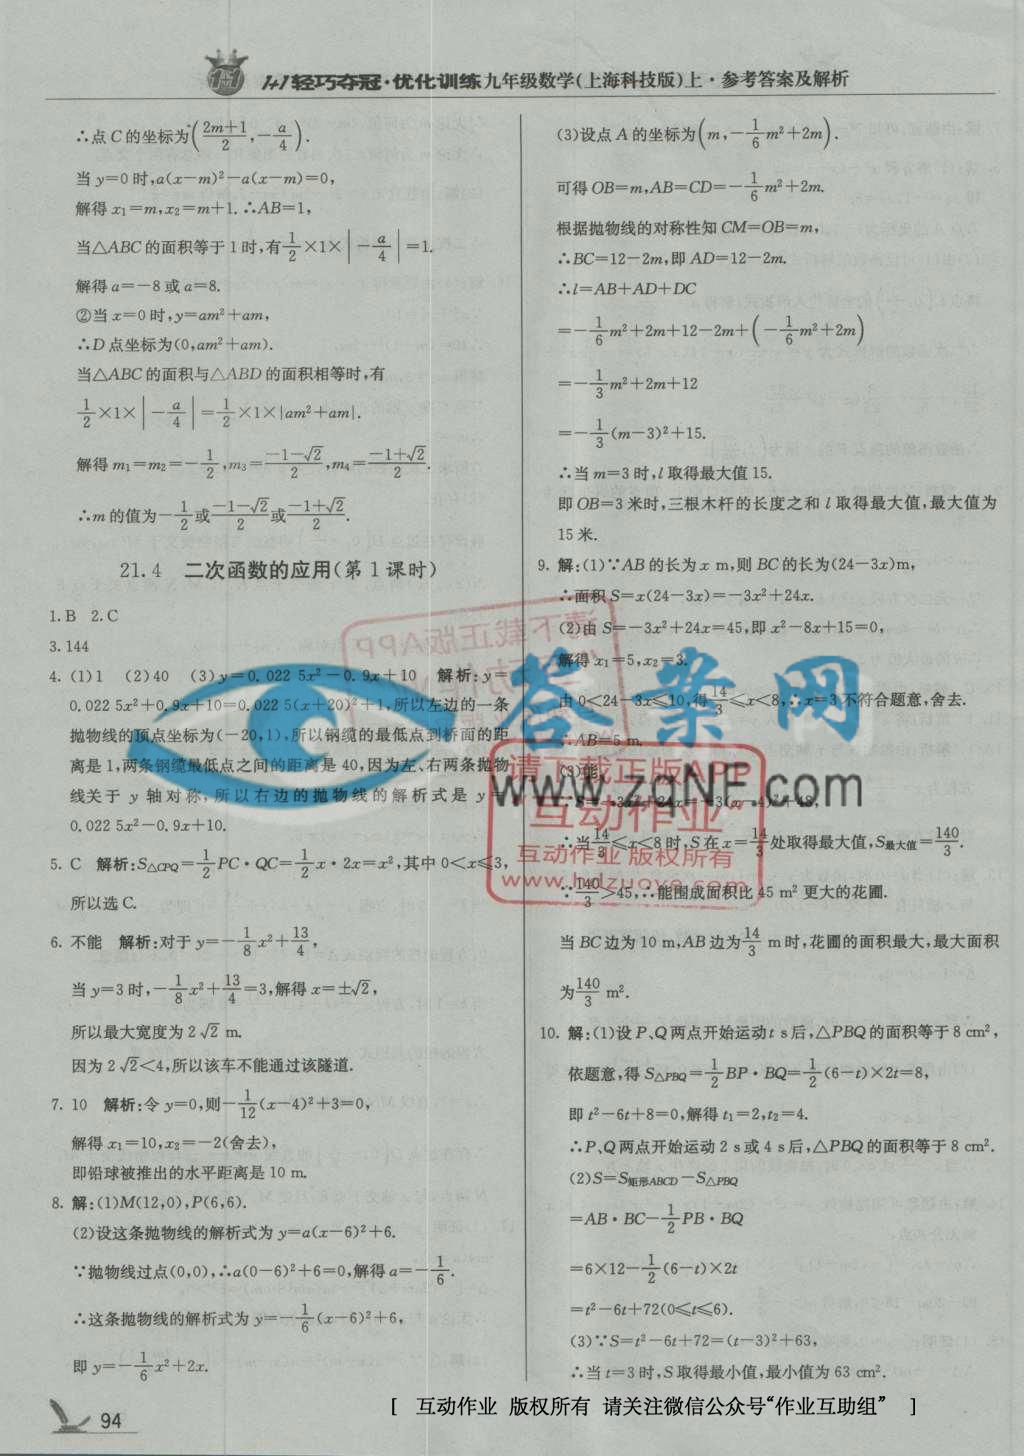 1+1轻巧夺冠·优化训练九年级数学(上海科技版)上·参考答案及解析
∴点C的坐标为(\frac{2m+1}{2},-\frac{a}{4}).
当y=0时,a(x-m)²-a(x-m)=0,
解得x₁=m,x₂=m+1.∴AB=1,
当△ABC的面积等于1时,有\frac{1}{2}×1×|-\frac{a}{4}|=1.
解得a=-8或a=8.
②当x=0时,y=am²+am,
∴D点坐标为(0,am²+am).
当△ABC的面积与△ABD的面积相等时,有
\frac{1}{2}×1×|-\frac{a}{4}|=\frac{1}{2}×1×|am²+am|.
解得m₁=m₂=-\frac{1}{2},m₃=\frac{-1-√2}{2},m₄=\frac{-1+√2}{2}.
∴m的值为-\frac{1}{2}或\frac{-1-√2}{2}或\frac{-1+√2}{2}.
21.4 二次函数的应用(第1课时)
1.B 2.C
3.144
4.(1)1 (2)40 (3)y=0.022 5x²-0.9x+10 解析:y=
0.022 5x²+0.9x+10=0.022 5(x+20)²+1,所以左边的一条
抛物线的顶点坐标为(-20,1),所以钢缆的最低点到桥面的距
离是1,两条钢缆最低点之间的距离是40,因为左、右两条抛物
线关于y轴对称,所以右边的抛物线的解析式是y=
0.022 5x²-0.9x+10.
5.C 解析:S△CPQ=\frac{1}{2}PC·QC=\frac{1}{2}x·2x=x²,其中0<x≤3,
所以选C.
6.不能 解析:对于y=-\frac{1}{8}x²+\frac{13}{4},
当y=3时,-\frac{1}{8}x²+\frac{13}{4}=3,解得x=±√2,
所以最大宽度为2√2 m.
因为2√2<4,所以该车不能通过该隧道.
7.10 解析:令y=0,则-\frac{1}{12}(x-4)²+3=0,
解得x₁=10,x₂=-2(舍去),
即铅球被推出的水平距离是10 m.
8.解:(1)M(12,0),P(6,6).
(2)设这条抛物线的解析式为y=a(x-6)²+6.
∵抛物线过点(0,0),∴a(0-6)²+6=0,解得a=-\frac{1}{6}.
∴这条抛物线的解析式为y=-\frac{1}{6}(x-6)²+6,
即y=-\frac{1}{6}x²+2x.
(3)设点A的坐标为(m,-\frac{1}{6}m²+2m).
可得OB=m,AB=CD=-\frac{1}{6}m²+2m.
根据抛物线的对称性知CM=OB=m,
∴BC=12-2m,即AD=12-2m.
∴l=AB+AD+DC
=-\frac{1}{6}m²+2m+12-2m+(-\frac{1}{6}m²+2m)
=-\frac{1}{3}m²+2m+12
=-\frac{1}{3}(m-3)²+15.
∴当m=3时,l取得最大值15.
即OB=3米时,三根木杆的长度之和l取得最大值,最大值为
15米.
9.解:(1)∵AB的长为x m,则BC的长为(24-3x)m,
∴面积S=x(24-3x)=-3x²+24x.
(2)由S=-3x²+24x=45,即x²-8x+15=0,
解得x₁=5,x₂=3.
由0<24-3x≤10,得\frac{14}{3}≤x<8,∴x=3不符合题意,舍去.
∴AB=5 m.
(3)能.
∵S=-3x²+24x=-3(x-4)²+48,
∴当\frac{14}{3}≤x<8时,S在x=\frac{14}{3}处取得最大值,S最大值=\frac{140}{3}.
∵\frac{140}{3}>45,∴能围成面积比45 m²更大的花圃.
当BC边为10 m,AB边为\frac{14}{3} m时,花圃的面积最大,最大面积
为\frac{140}{3} m².
10.解:(1)设P、Q两点开始运动t s后,△PBQ的面积等于8 cm²,
依题意,得S△PBQ=\frac{1}{2}BP·BQ=\frac{1}{2}(6-t)×2t=8,
即t²-6t+8=0,解得t₁=2,t₂=4.
∴P、Q两点开始运动2 s或4 s后,△PBQ的面积等于8 cm².
(2)S=S矩形ABCD-S△PBQ
=AB·BC-\frac{1}{2}PB·BQ
=6×12-\frac{1}{2}(6-t)×2t
=t²-6t+72(0≤t≤6).
(3)∵S=t²-6t+72=(t-3)²+63,
∴当t=3时,S取得最小值,最小值为63 cm².
答案网
www.zqNF.com
请下载正版APP
"互动作业"
互动作业 版权所有
www.hdzuoye.com
请下载正版APP
94
[ 互动作业 版权所有 请关注微信公众号“作业互助组” ]